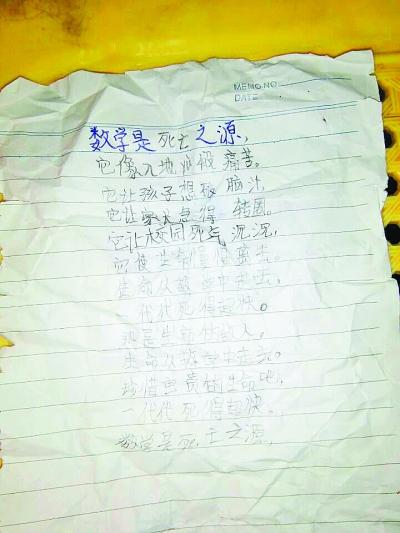 MEMO NO.
DATE
数学是死亡之源,
它像入地狱般痛苦。
它让孩子想破脑汁,
它让家长急得转圈。
它让校园死气沉沉,
它使生命慢慢离去。
生命从数学中走去,
一代代死得超快。
是生命 人。
生命从数学中走去。
珍惜宝贵的生命吧,
一代代死得超快。
数学是死亡之源,